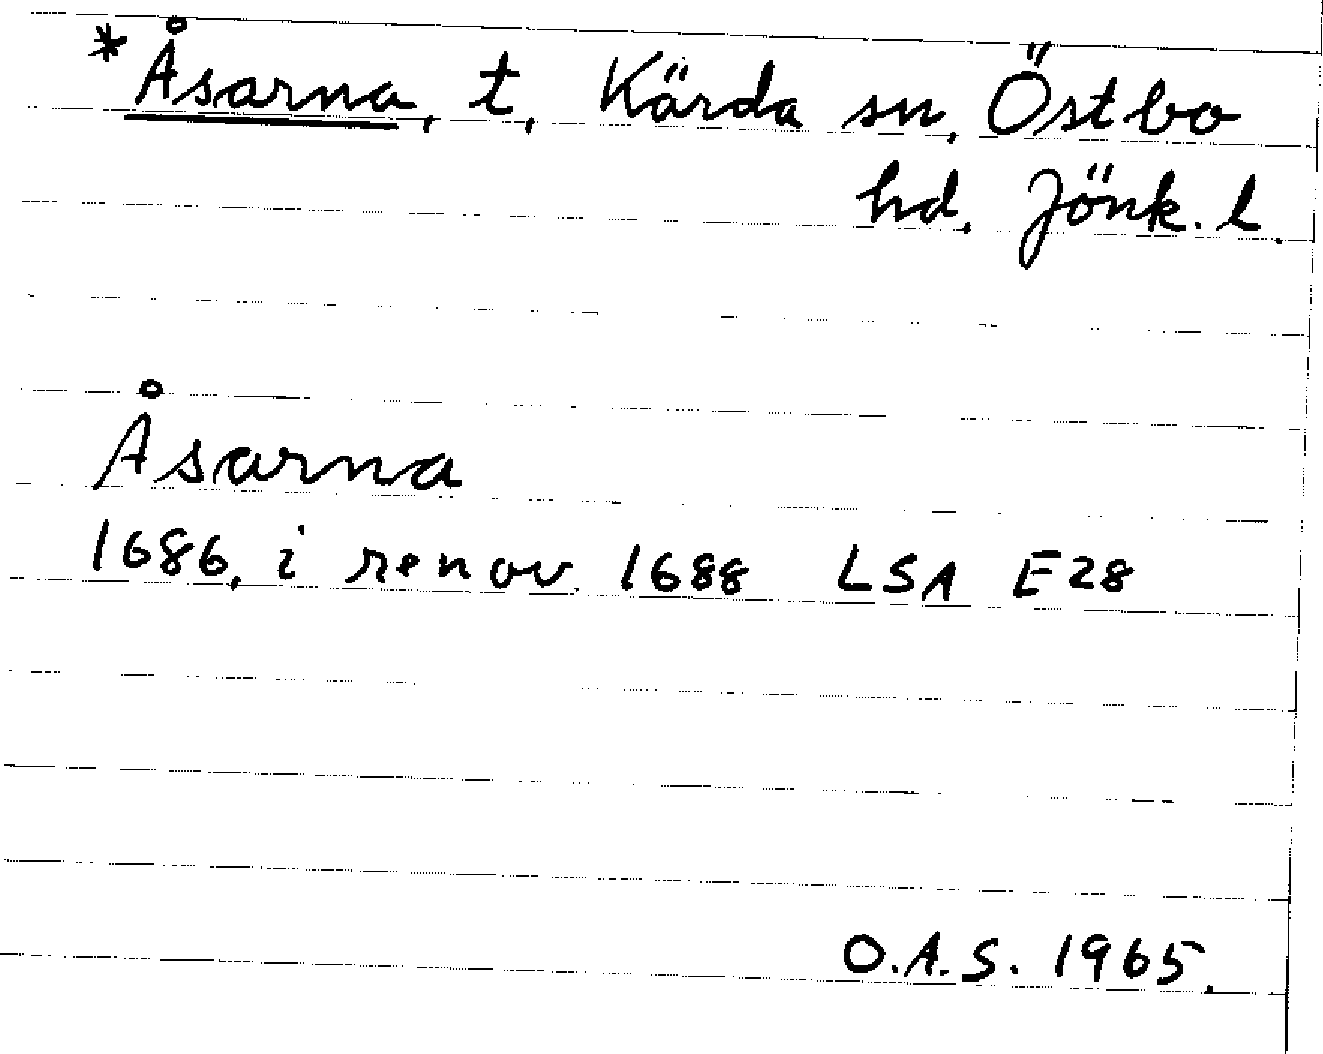 *Åsarna, t, Kärda sn, Östbo
hd, Jönk. l.
Åsarna
1686, i renov. 1688 LSA E28
O.A.S. 1965.